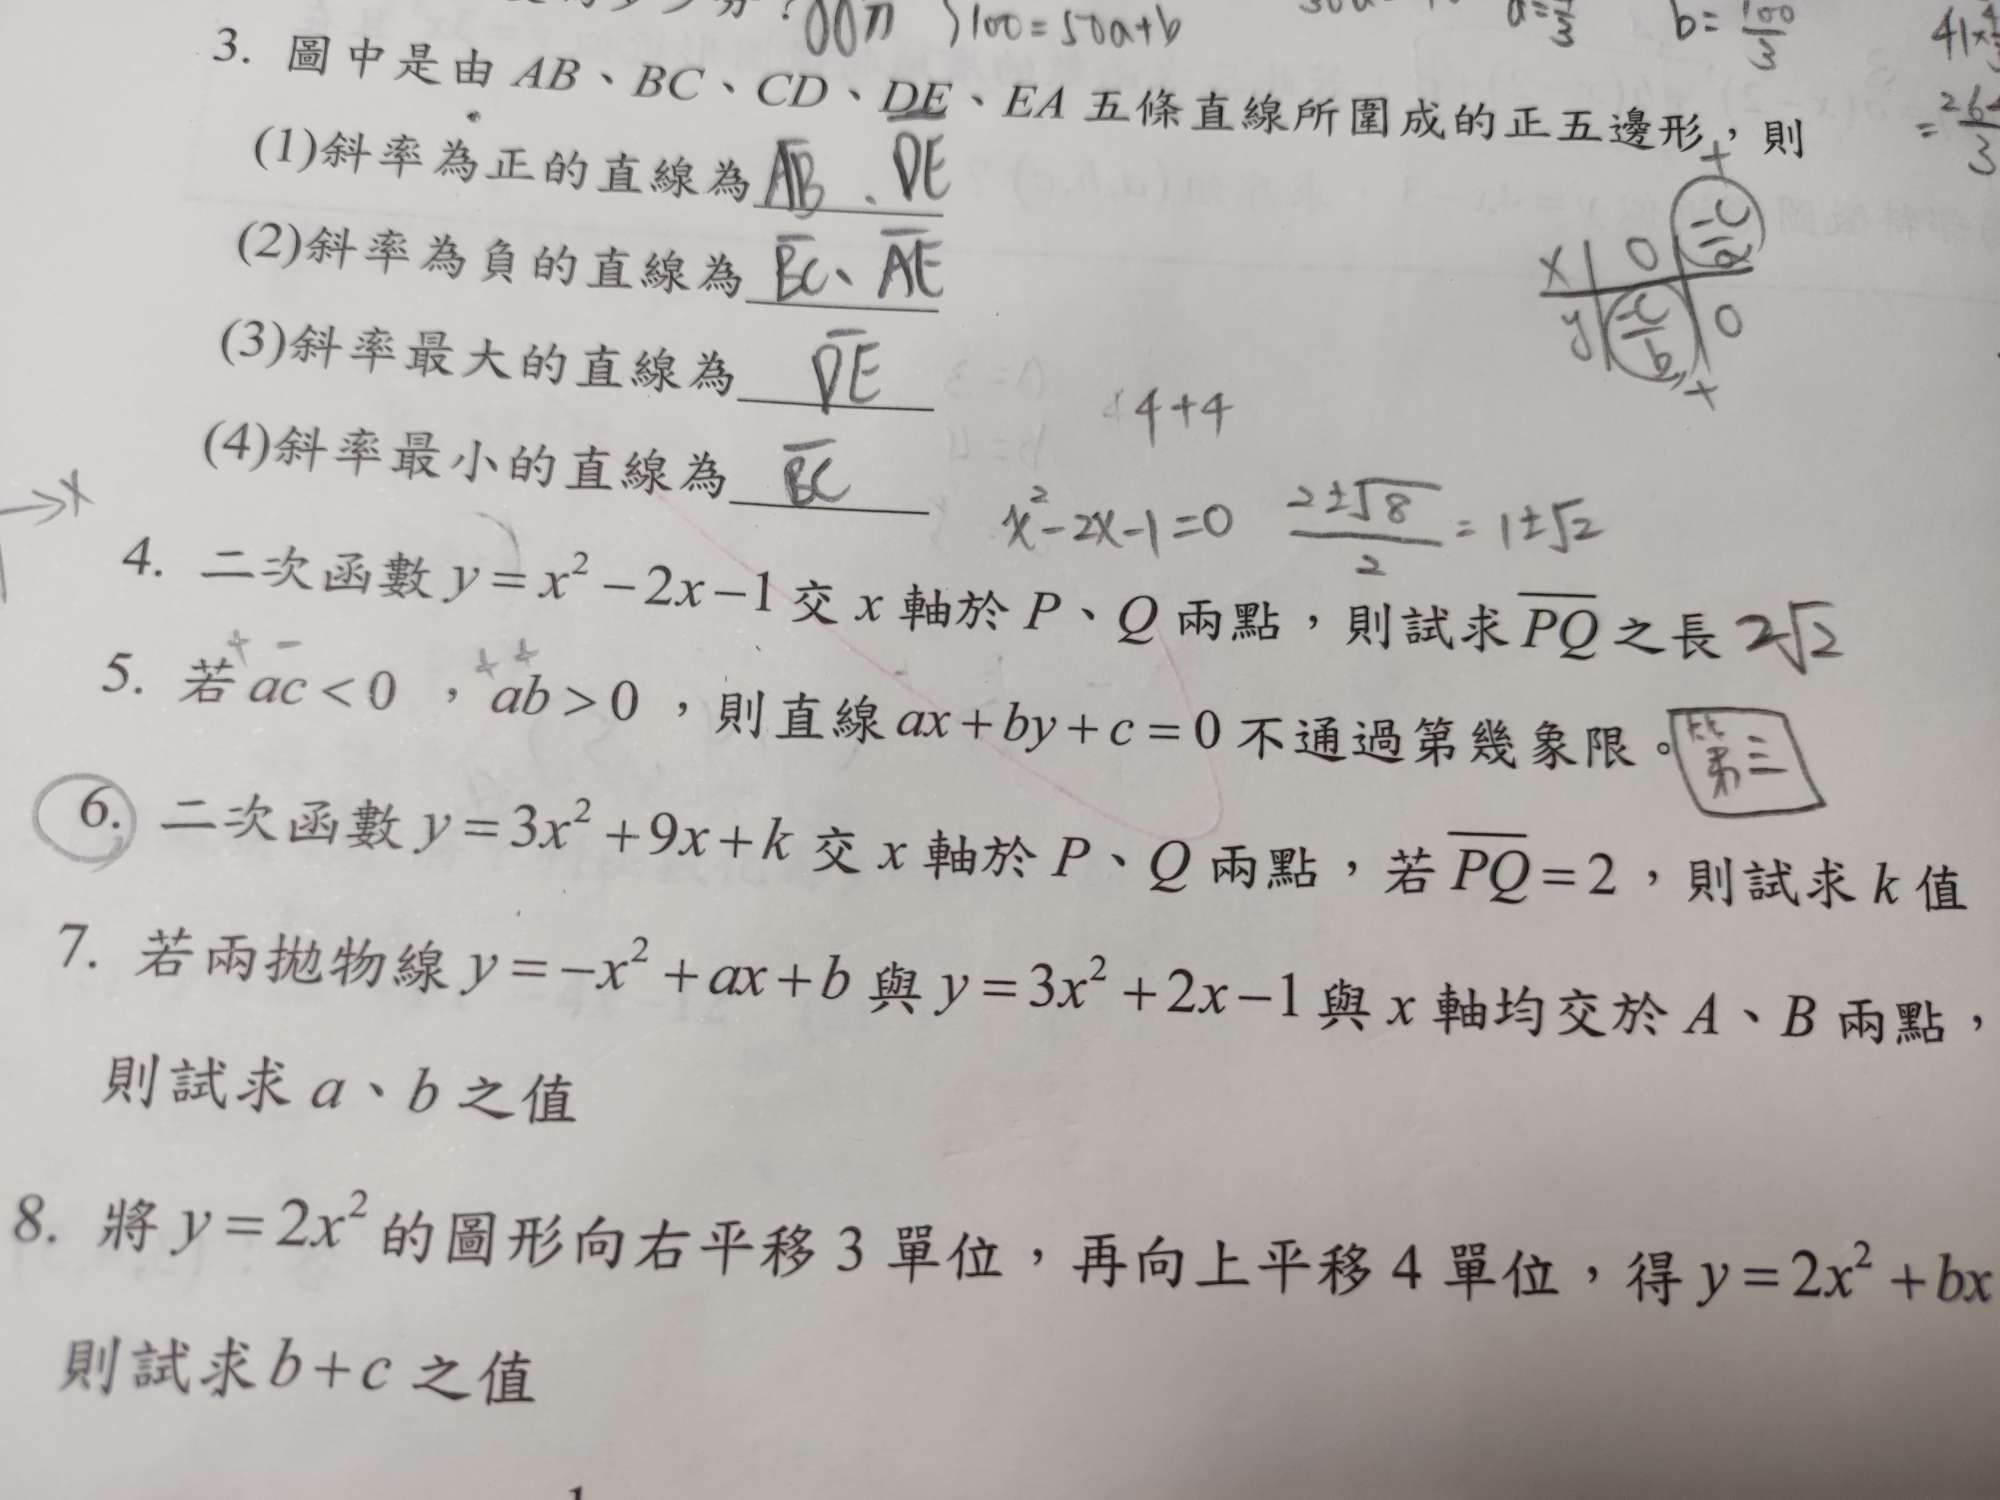 100=50a+b
b=100/3
3. 圖中是由 AB、BC、CD、DE、EA 五條直線所圍成的正五邊形,則
(1)斜率為正的直線為 AB、DE
(2)斜率為負的直線為 BC、AE
(3)斜率最大的直線為 DE
(4)斜率最小的直線為 BC
x 0 -c/a
y -c/b 0
+
+
4+4
x
x²-2x-1=0 (2±√8)/2 = 1±√2
4. 二次函數 y=x²-2x-1 交 x 軸於 P、Q 兩點,則試求 PQ 之長 2√2
+ - + +
5. 若 ac<0 ,ab>0 ,則直線 ax+by+c=0 不通過第幾象限。 第三
6. 二次函數 y=3x²+9x+k 交 x 軸於 P、Q 兩點,若 PQ=2,則試求 k 值
7. 若兩拋物線 y=-x²+ax+b 與 y=3x²+2x-1 與 x 軸均交於 A、B 兩點,
則試求 a、b 之值
8. 將 y=2x² 的圖形向右平移 3 單位,再向上平移 4 單位,得 y=2x²+bx
則試求 b+c 之值